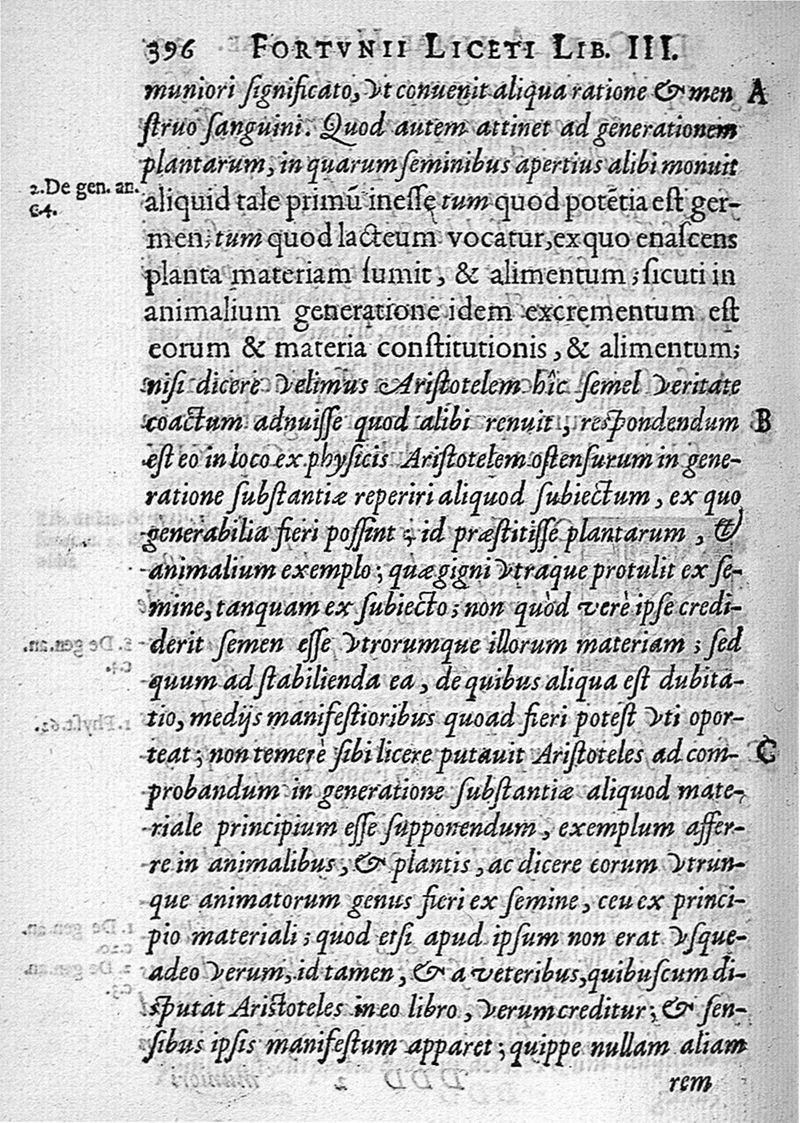 396 FORTVNII LICETI LIB. III.
muniori significato, vt conuenit aliqua ratione & men A
struo sanguini. Quod autem attinet ad generationem
plantarum, in quarum seminibus apertius alibi monuit
2. De gen. an.
c. 4.
aliquid tale primū inesse, tum quod potētia est ger-
men; tum quod lacteum vocatur, ex quo enascens
planta materiam sumit, & alimentum; sicuti in
animalium generatione idem excrementum est
eorum & materia constitutionis, & alimentum;
nisi dicere velimus Aristotelem hîc semel veritate
coactum adnuisse quod alibi renuit; respondendum B
est eo in loco ex physicis Aristotelem ostensurum in gene-
ratione substantiæ reperiri aliquod subiectum, ex quo
generabilia fieri possint; id præstitisse plantarum, &
animalium exemplo; quæ gigni vtraque protulit ex se-
mine, tanquam ex subiecto; non quòd verè ipse credi-
derit semen esse vtrorumque illorum materiam; sed
quum ad stabilienda ea, de quibus aliqua est dubita-
tio, medijs manifestioribus quoad fieri potest vti opor-
teat; non temerè sibi licere putauit Aristoteles ad com- C
probandum in generatione substantiæ aliquod mate-
riale principium esse supponendum, exemplum affer-
re in animalibus, & plantis, ac dicere eorum vtrun-
que animatorum genus fieri ex semine, ceu ex princi-
pio materiali; quod etsi apud ipsum non erat vsque-
adeo verum, id tamen, & a veteribus, quibuscum di-
sputat Aristoteles in eo libro, verum creditur; & sen-
sibus ipsis manifestum apparet; quippe nullam aliam
rem